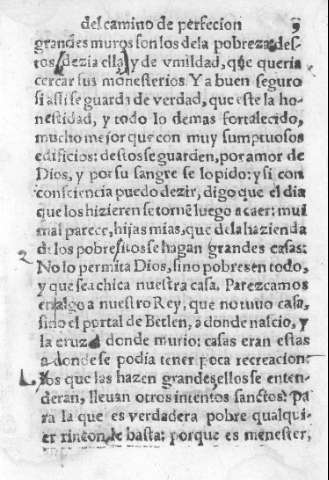 del camino de perfecion 9
grandes muros son los dela pobreza: des-
tos dezia ella, y de vmildad, que queria
cercar sus monesterios Y a buen seguro
si assi se guarda de verdad, que este la ho-
nestidad, y todo lo demas fortalecido,
mucho mejor que con muy sumptuosos
edificios: destos se guarden, por amor de
Dios, y por su sangre se lo pido: y si con
consciencia puedo dezir, digo que el dia
que los hizieren se tornẽ luego a caer: mui
mal parece, hijas mias, que dela hazienda
de los pobresitos se hagan grandes casas:
No lo permita Dios, sino pobres en todo,
y que sea chica nuestra casa. Parezcamos
en algo a nuestro Rey, que no tuuo casa,
sino el portal de Betlen, a donde nascio, y
la cruz a donde murio: casas eran estas
a donde se podia tener poca recreacion:
los que las hazen grandes, ellos se enten-
deran, lleuan otros intentos sanctos: pa
ra la que es verdadera pobre qualqui-
er rincon le basta: porque es menester,